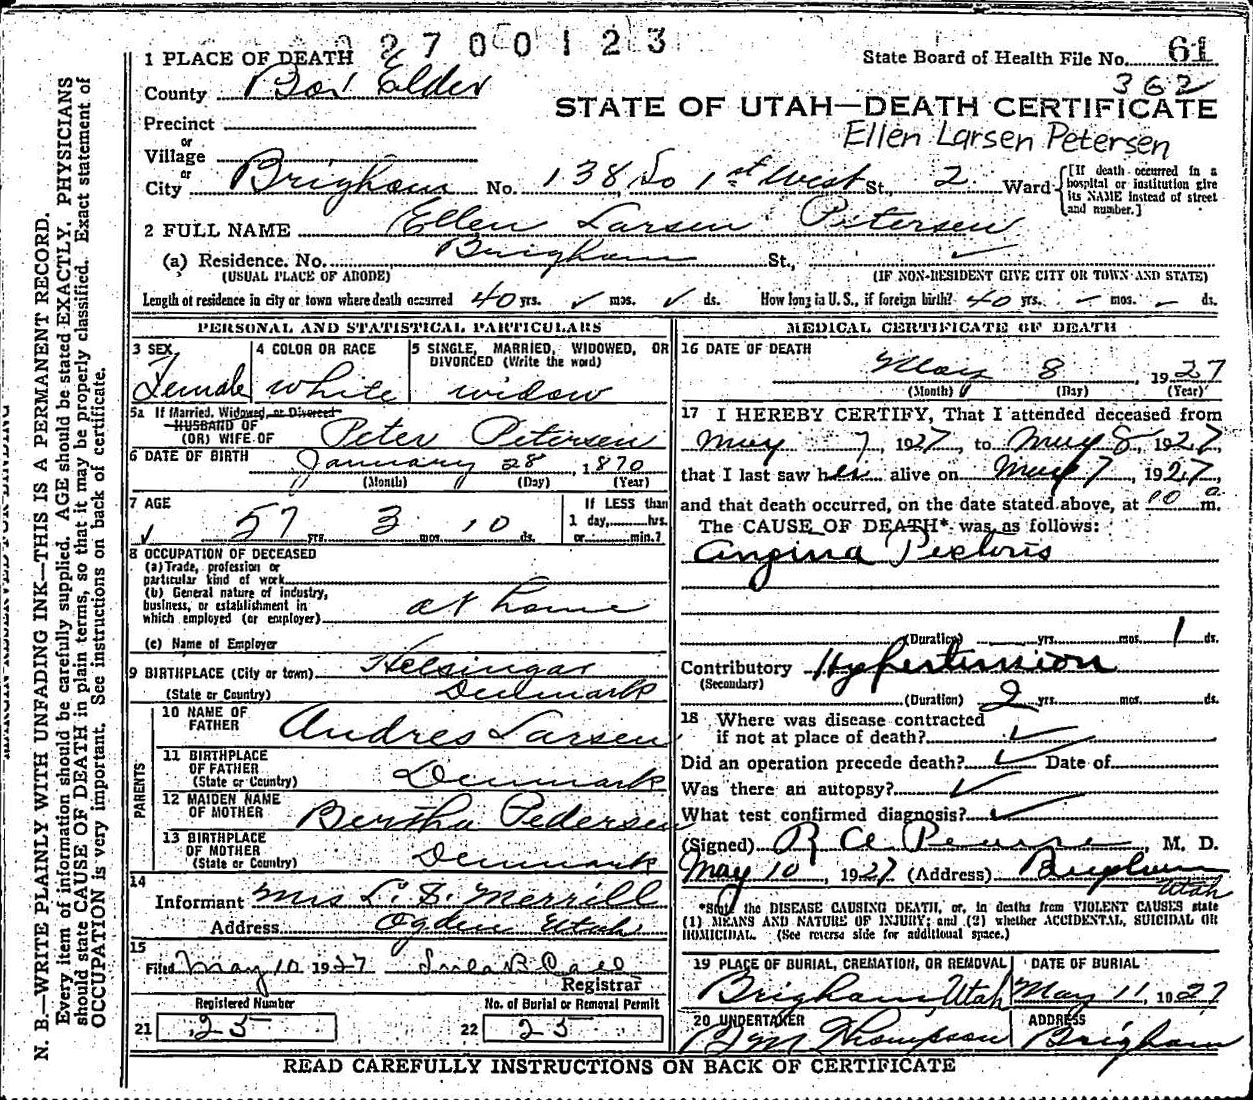 2700123
1 PLACE OF DEATH
State Board of Health File No. 61
362
County Box Elder
STATE OF UTAH—DEATH CERTIFICATE
Ellen Larsen Petersen
Precinct
or
Village
or
City Brigham No. 138 So 1st West St., 2 Ward
[If death occurred in a
hospital or institution give
its NAME instead of street
and number.]
2 FULL NAME Ellen Larsen Petersen
(a) Residence. No. Brigham St.,
(USUAL PLACE OF ABODE) (IF NON-RESIDENT GIVE CITY OR TOWN AND STATE)
Length of residence in city or town where death occurred 40 yrs. ✓ mos. ✓ ds. How long in U.S., if foreign birth? 40 yrs. – mos. – ds.
PERSONAL AND STATISTICAL PARTICULARS
3 SEX 4 COLOR OR RACE 5 SINGLE, MARRIED, WIDOWED, OR
DIVORCED (Write the word)
Female white widow
5a If Married, Widowed, or Divorced
HUSBAND OF
(OR) WIFE OF Peter Petersen
6 DATE OF BIRTH January 28, 1870
(Month) (Day) (Year)
7 AGE If LESS than
✓ 57 yrs. 3 mos. 10 ds. 1 day,......hrs.
or......min.?
8 OCCUPATION OF DECEASED
(a) Trade, profession or
particular kind of work
(b) General nature of industry,
business, or establishment in
which employed (or employer) at home
(c) Name of Employer
9 BIRTHPLACE (City or town) Helsingar
(State or Country) Denmark
PARENTS
10 NAME OF
FATHER Andres Larsen
11 BIRTHPLACE
OF FATHER
(State or Country) Denmark
12 MAIDEN NAME
OF MOTHER Bertha Pedersen
13 BIRTHPLACE
OF MOTHER
(State or Country) Denmark
14
Informant Mrs L. S. Merrill
Address Ogden Utah
15
Filed May 10 1927
Registrar
Registered Number No. of Burial or Removal Permit
21 25 22 25
MEDICAL CERTIFICATE OF DEATH
16 DATE OF DEATH
May 8, 1927
(Month) (Day) (Year)
17 I HEREBY CERTIFY, That I attended deceased from
May 7, 1927, to May 8, 1927,
that I last saw her alive on May 7, 1927,
and that death occurred, on the date stated above, at 10 a m.
The CAUSE OF DEATH* was as follows:
Angina Pectoris
(Duration) yrs. mos. 1 ds.
Contributory Hypertension
(Secondary)
(Duration) 2 yrs. mos. ds.
18 Where was disease contracted
if not at place of death? ✓
Did an operation precede death? ✓ Date of
Was there an autopsy? ✓
What test confirmed diagnosis? ✓
(Signed) R A Pearse, M. D.
May 10, 1927 (Address) Brigham
Utah
*State the DISEASE CAUSING DEATH, or, in deaths from VIOLENT CAUSES state
(1) MEANS AND NATURE OF INJURY; and (2) whether ACCIDENTAL, SUICIDAL OR
HOMICIDAL. (See reverse side for additional space.)
19 PLACE OF BURIAL, CREMATION, OR REMOVAL DATE OF BURIAL
Brigham Utah May 11, 1927
20 UNDERTAKER ADDRESS
Thompson Brigham
READ CAREFULLY INSTRUCTIONS ON BACK OF CERTIFICATE
N. B.—WRITE PLAINLY WITH UNFADING INK—THIS IS A PERMANENT RECORD.
Every item of information should be carefully supplied. AGE should be stated EXACTLY. PHYSICIANS
should state CAUSE OF DEATH in plain terms, so that it may be properly classified. Exact statement of
OCCUPATION is very important. See instructions on back of certificate.